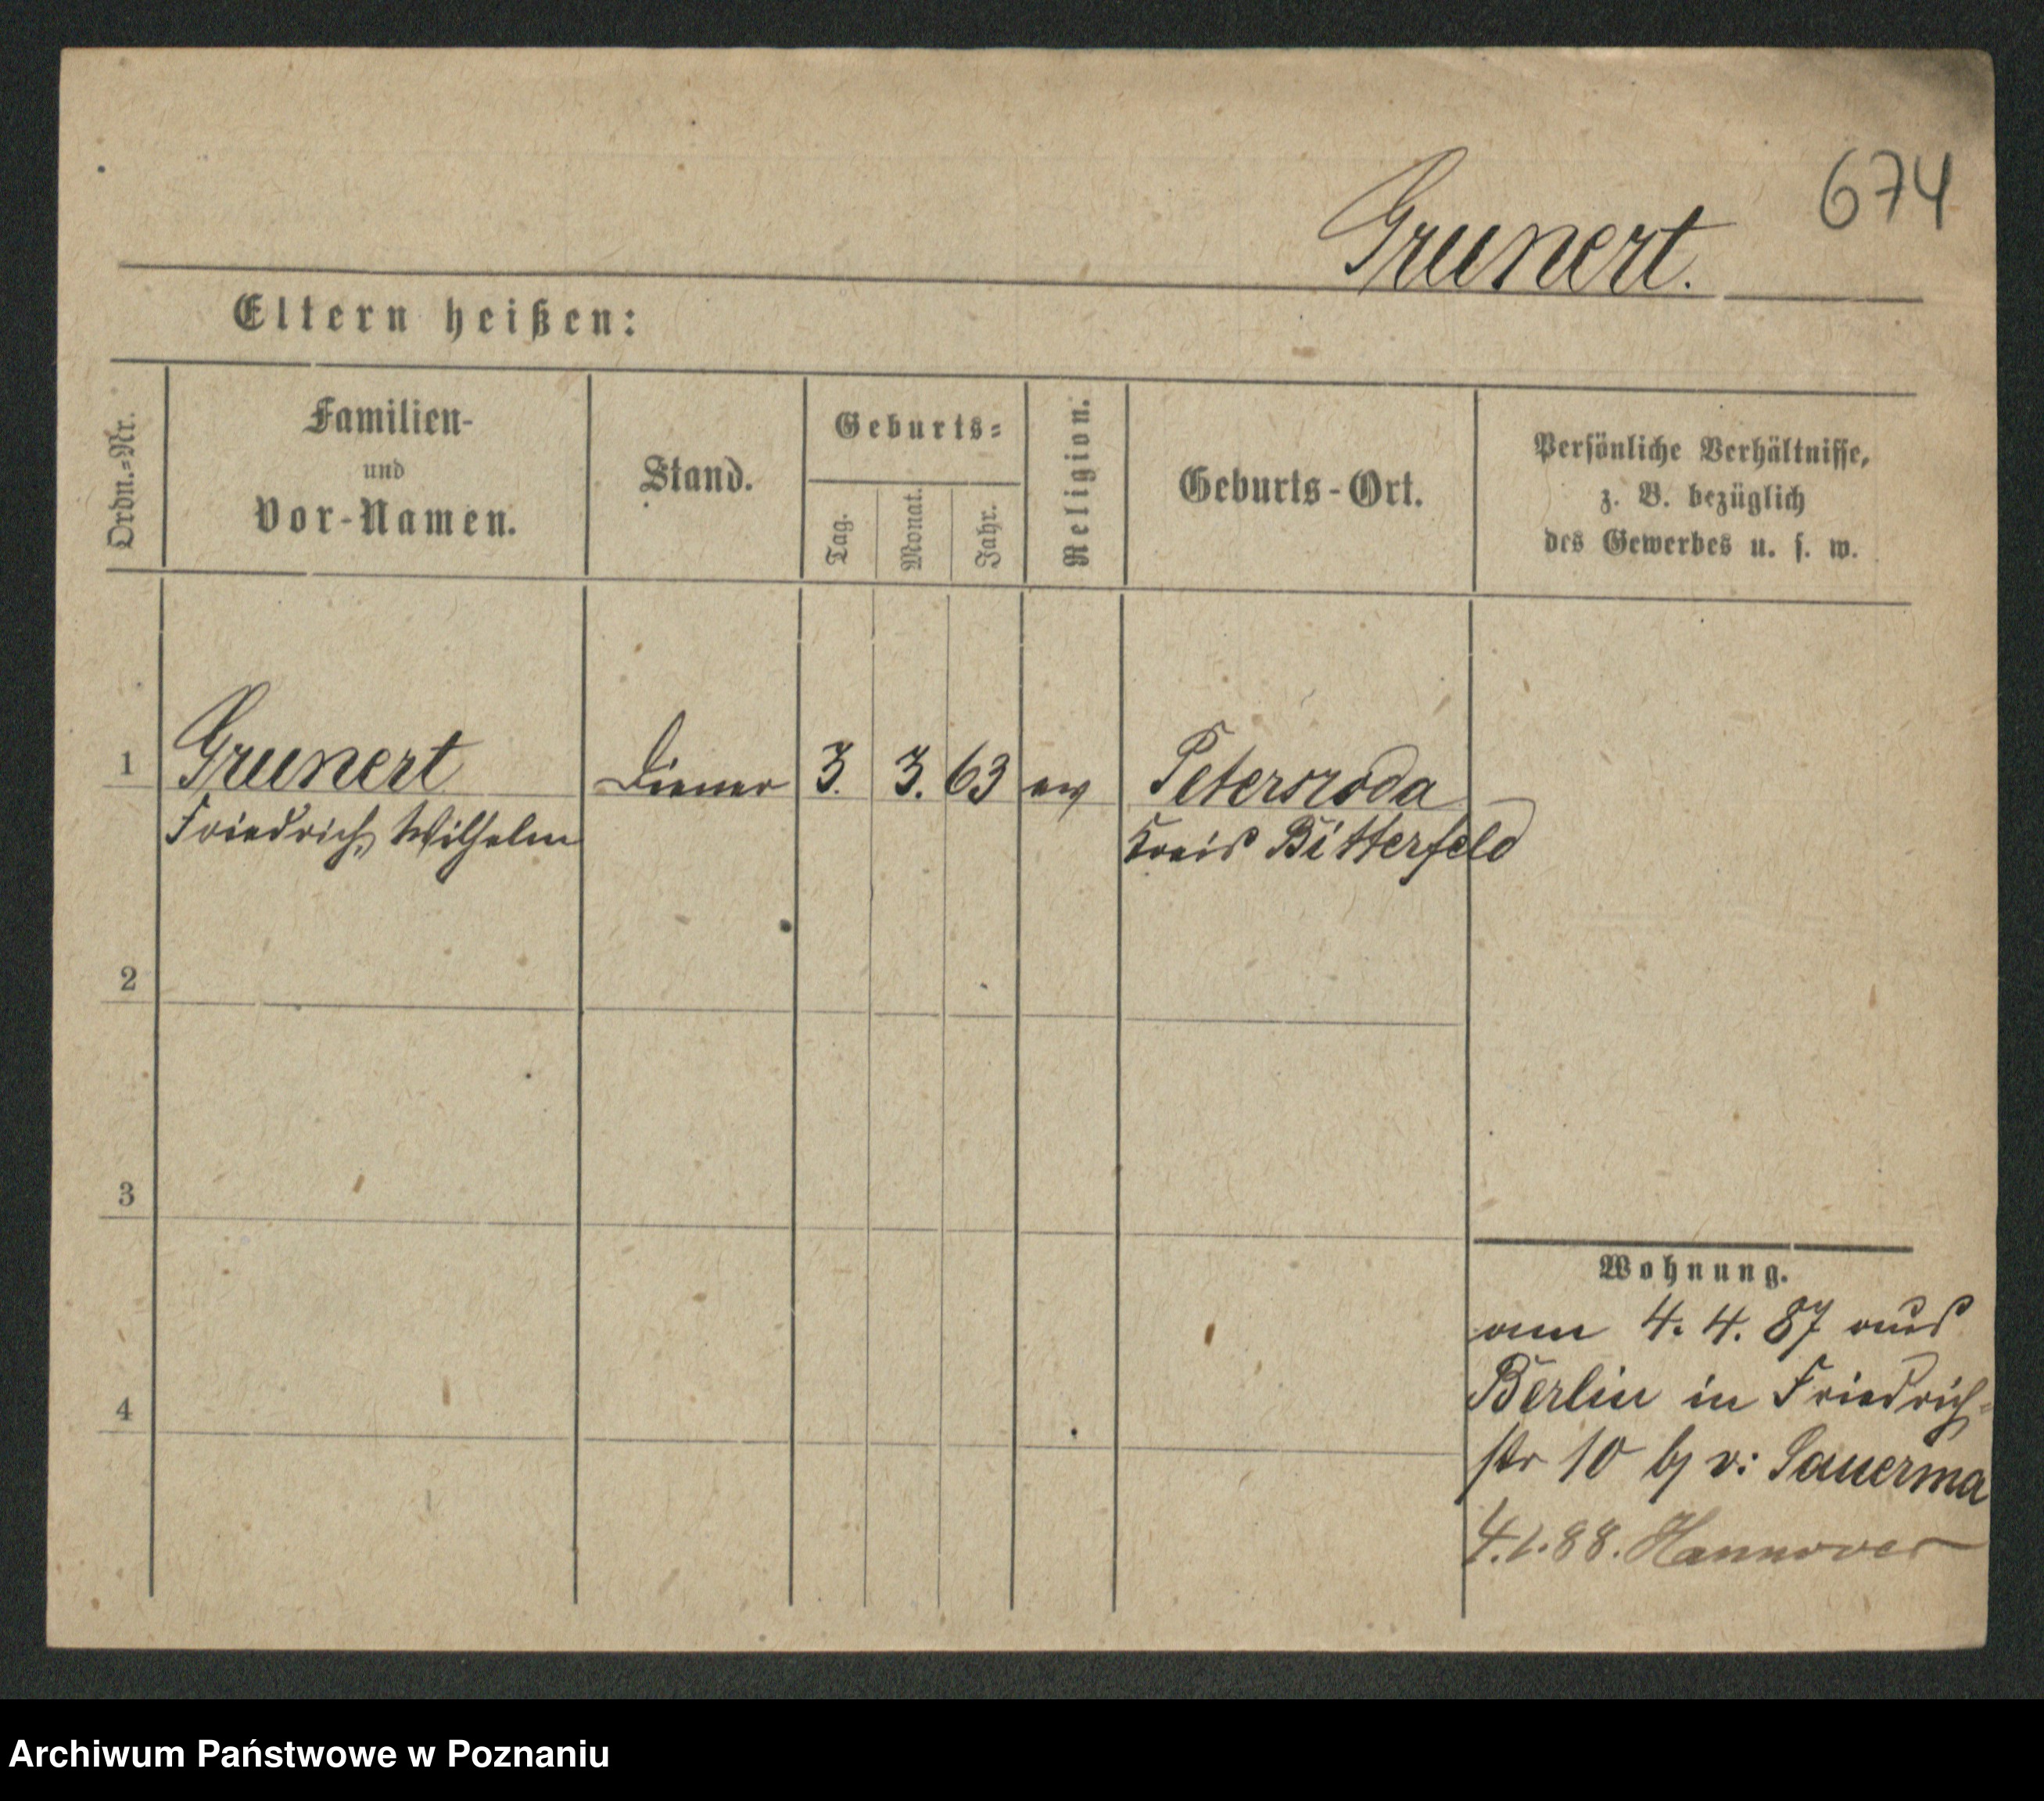 674
Grunert.
Eltern heißen:
Ordn.=Nr.
Familien-
und
Vor-Namen.
Stand.
Geburts=
Tag.
Monat.
Jahr.
Religion.
Geburts-Ort.
Persönliche Verhältnisse,
z. B. bezüglich
des Gewerbes u. s. w.
1 Grunert Diener 3. 3. 63 ev Petersroda
Friedrich, Wilhelm Kreis Bitterfeld
2
3
4
Wohnung.
am 4. 4. 87 aus
Berlin in Friedrich-
str 10 bj v: Sauerma
4.1.88. Hannover
Archiwum Państwowe w Poznaniu